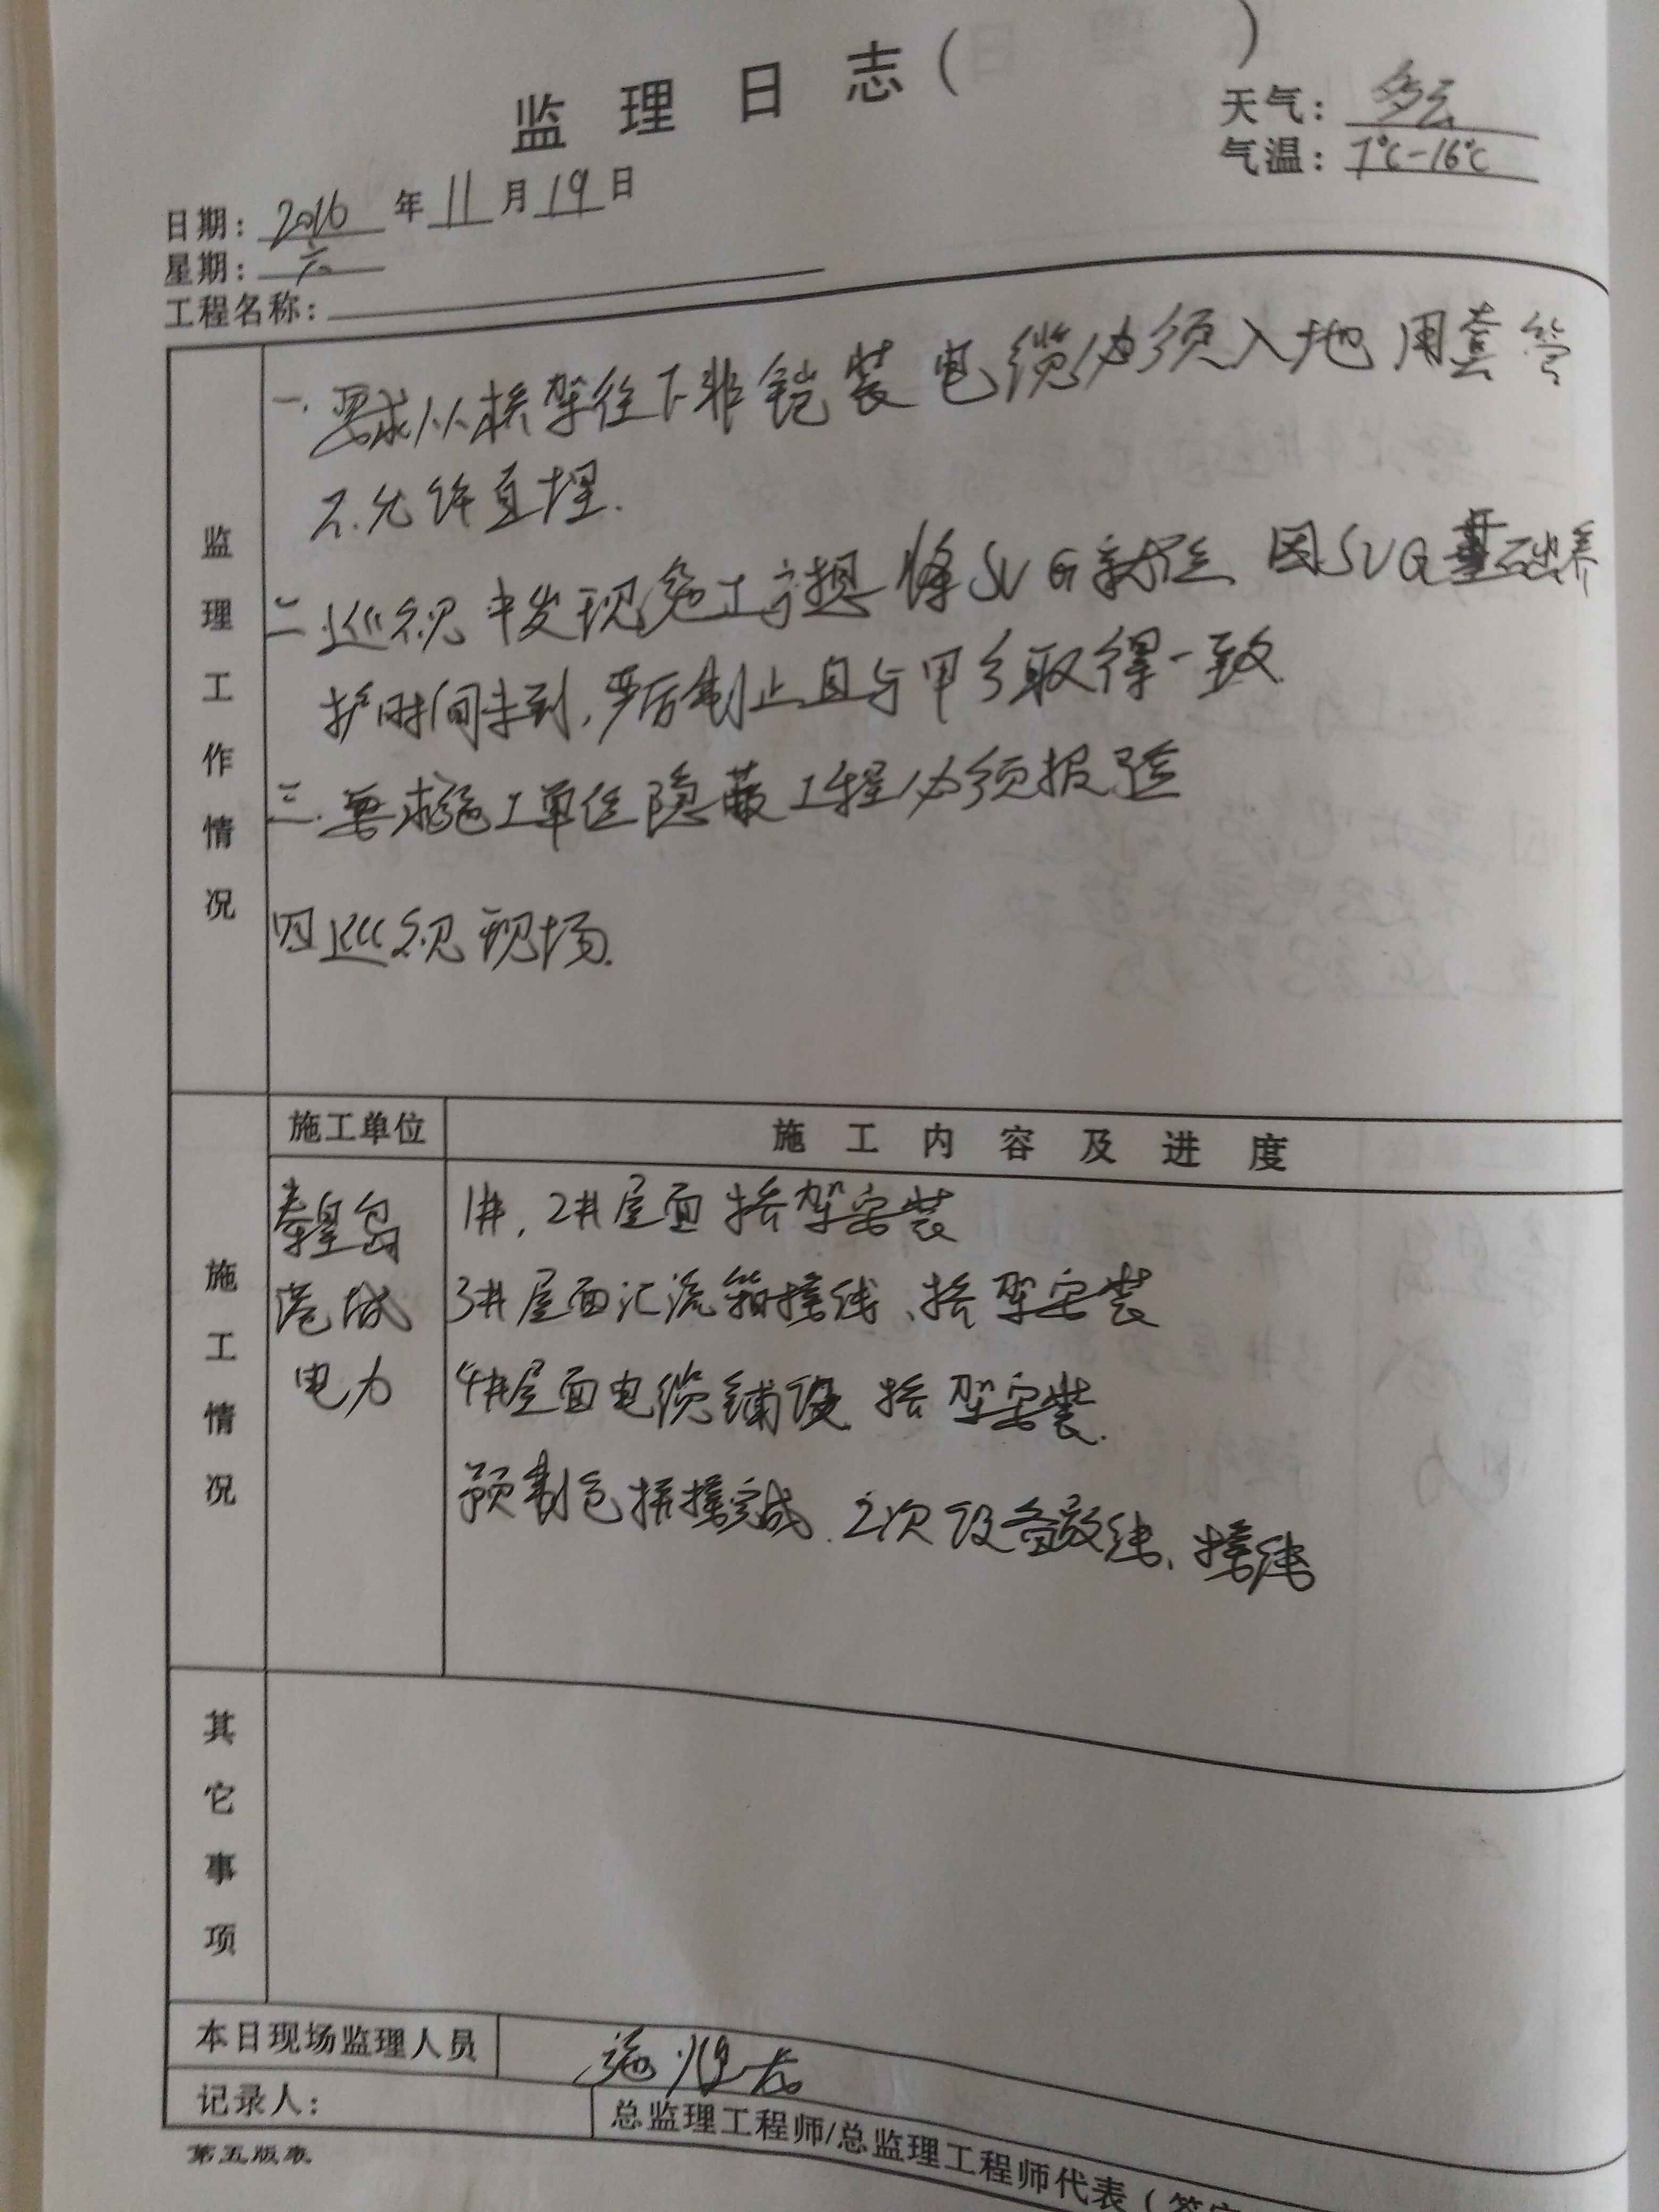 监理日志( )
天气：多云
气温：7℃-16℃
日期：2016年11月19日
星期：六
工程名称：
监理工作情况
一.要求从桥架往下非铠装电缆必须入地用套管
不允许直埋.
二.巡视中发现施工方想将SVG就位 因SVG基础养
护时间未到,严厉制止且与甲方取得一致.
三.要求施工单位隐蔽工程必须报验
四巡视现场.
施工情况
施工单位
施工内容及进度
秦皇岛
港城
电力
1#,2#屋面桥架安装
3#屋面汇流箱接线、桥架安装
4#屋面电缆铺设 桥架安装.
预制仓拼接完成.2次设备放线、接线
其它事项
本日现场监理人员
施
记录人：
总监理工程师/总监理工程师代表(签
第五版表